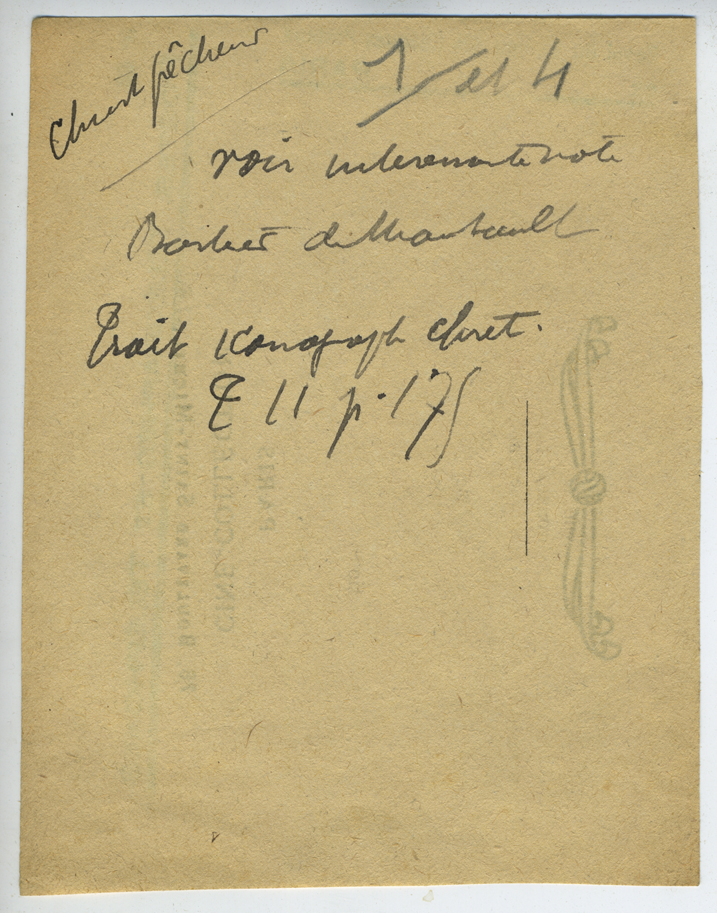 Christ pêcheur
1 et 4
voir interessante note
Barbier de Montault
Trait iconograph chret.
T II p. 175